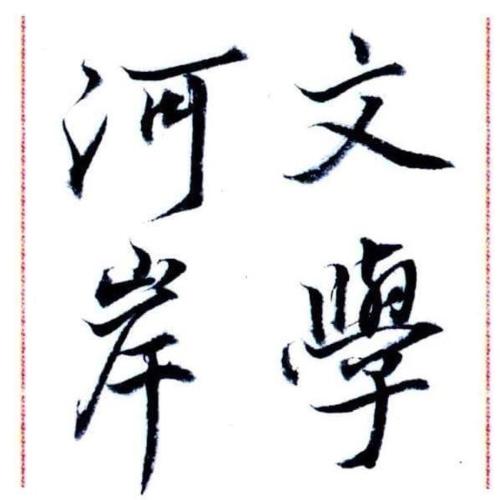 文學
河岸